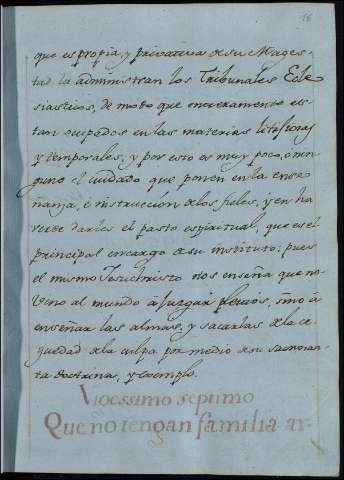 16
que es propia, y privativa de su Mages-
tad la administran los Tribunales Ecle
siasticos, de modo que enteramente es-
tan ocupados en las materias litigiosas
y temporales; y por esto es muy poco, ó nin
guno el cuidado que ponen en la ense
ñanza, é instruccion de los fieles, y en ha
verde darles el pasto espiritual, que es el
principal encargo de su instituto; pues
el mismo Jesuchristo nos enseña que no
veno al mundo à Juzgar pleitos, sino à
enseñar las almas, y sacarlas de la ce
guedad de la culpa por medio de su sacrosan
ta doctrina, y exemplo.
Vigessimo septimo
Que no tengan familia ar-